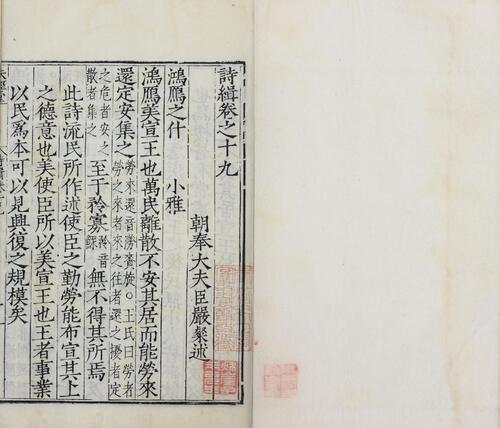 詩緝卷之十九
朝奉大夫臣嚴粲述
鴻鴈之什　小雅
鴻鴈美宣王也萬民離散不安其居而能勞來
還定安集之勞來還音勞賚旋○王氏曰勞者勞之來者來之往者還之擾者定
之危者安之散者集之至于矜寡矜音鰥無不得其所焉
此詩流民所作述使臣之勤勞能布宣其上
之德意也美使臣所以美宣王也王者事業
以民爲本可以見興復之規模矣